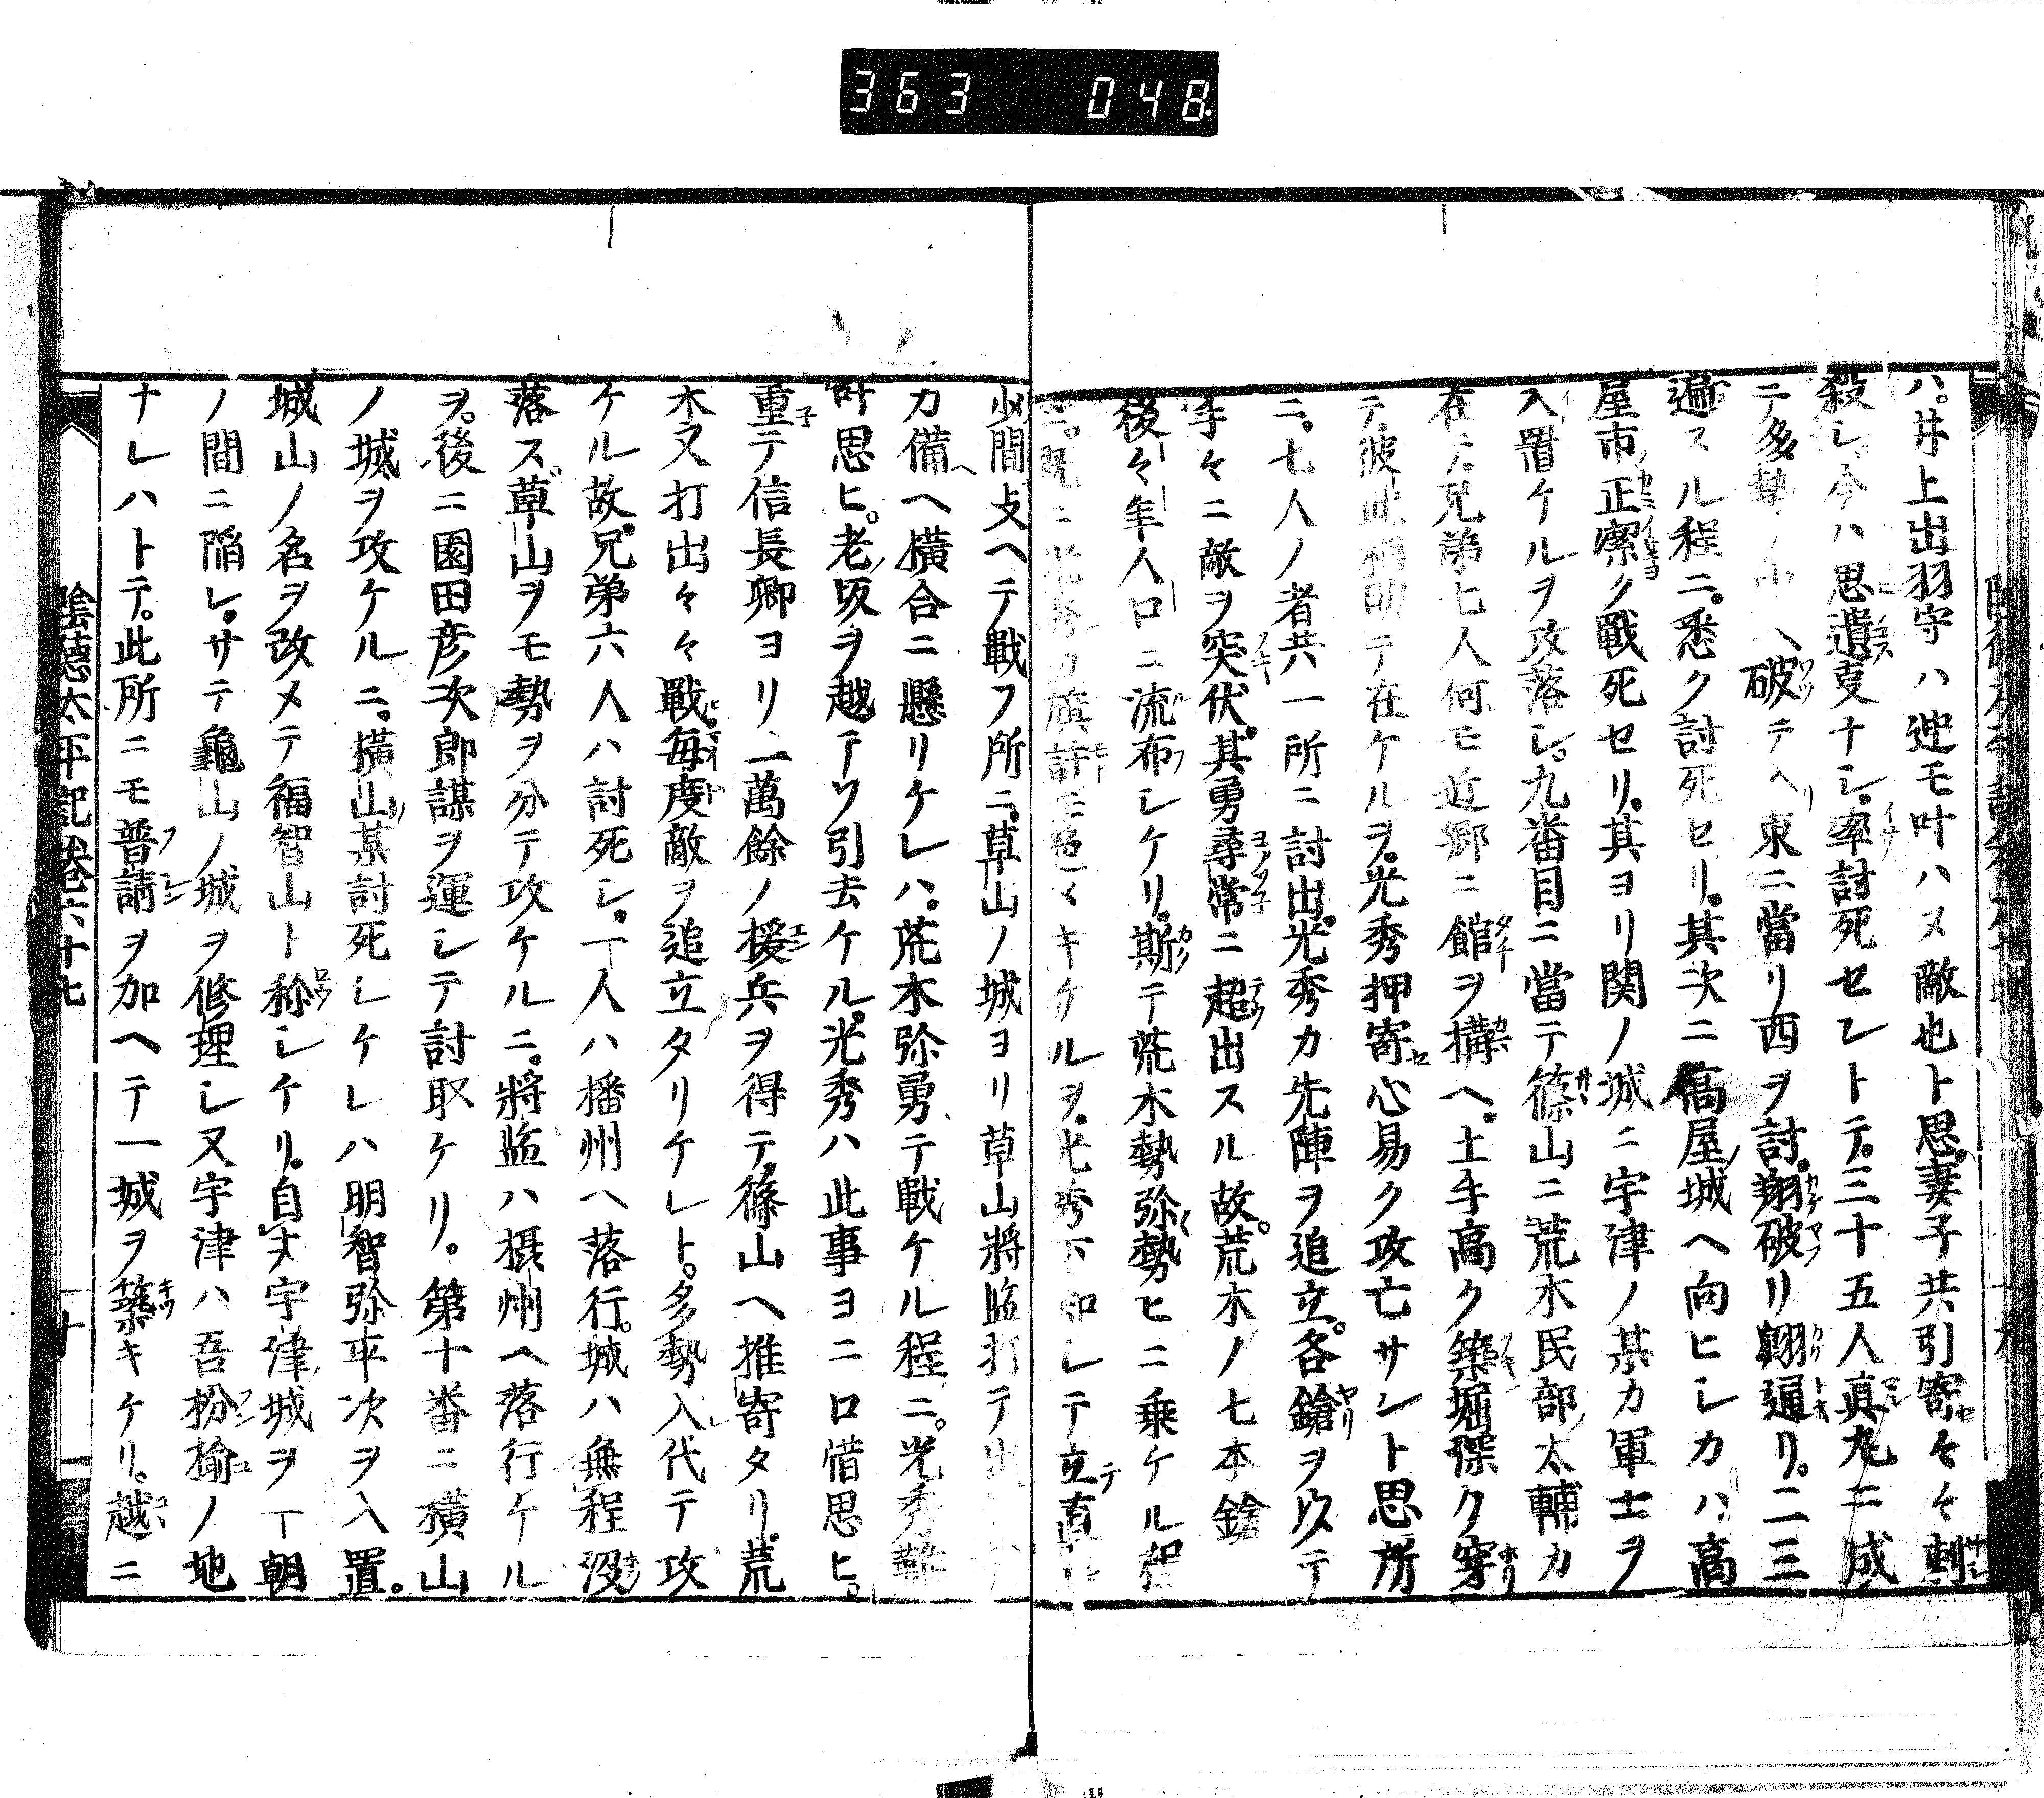 363 048
ハ。井上出羽守ハ迚モ叶ハヌ敵也ト思。妻子共引寄々々刺
殺シ。今ハ思遺叓ナシ。率討死セントテ。三十五人真丸ニ成
テ多勢ノ中ヘ破テ入東ニ當リ西ヲ討。翔破リ翔通リ。二三
遍スル程ニ。悉ク討死セリ。其次ニ高屋城ヘ向ヒシカハ。高
屋市正潔ク戰死セリ。其ヨリ関ノ城ニ宇津ノ某カ軍士ヲ
入置ケルヲ攻落シ。九番目ニ當テ篠山ニ荒木民部太輔カ
在テ。兄弟七人何モ近郷ニ館ヲ構ヘ。土手高ク築堀深ク穿
テ。彼此相助テ在ケルヲ。光秀押寄心易ク攻亡サント思所
ニ。七人ノ者共一所ニ討出。光秀カ先陣ヲ追立。各鎗ヲ以テ
手々ニ敵ヲ突伏。其勇尋常ニ超出スル故。荒木ノ七本鎗
後々年人口ニ流布シケリ。斯テ荒木勢弥勢ヒニ乗ケル程
ニ。既ニ光秀カ旗計モ色々キケルヲ。光秀下知シテ立直シ
少間支ヘテ戰フ所ニ。草山ノ城ヨリ草山將監打テ出
カ備ヘ横合ニ懸リケレハ。荒木弥勇テ戰ケル程ニ。光秀難
叶思ヒ。老坂ヲ越テソ引去ケル。光秀ハ此事ヨニ口惜思ヒ。
重テ信長卿ヨリ二萬餘ノ援兵ヲ得テ。篠山ヘ推寄タリ。荒
木又打出々々戰毎度敵ヲ追立タリケレト。多勢入代テ攻
ケル故。兄弟六人ハ討死シ。一人ハ播州ヘ落行。城ハ無程没
落ス。草山ヲモ勢ヲ分テ攻ケルニ。將監ハ摂州ヘ落行ケル
ヲ。後ニ園田彦次郎謀ヲ運シテ討取ケリ。第十番ニ横山
ノ城ヲ攻ケルニ。横山某討死シケレハ明智弥平次ヲ入置。
城山ノ名ヲ改メテ福智山ト称シケリ。自夫宇津城ヲ一朝
ノ間ニ陥シ。サテ龜山ノ城ヲ修理シ又宇津ハ吾枌楡ノ地
ナレハトテ。此所ニモ普請ヲ加ヘテ一城ヲ築キケリ。越ニ
陰德太平記卷六十七 十